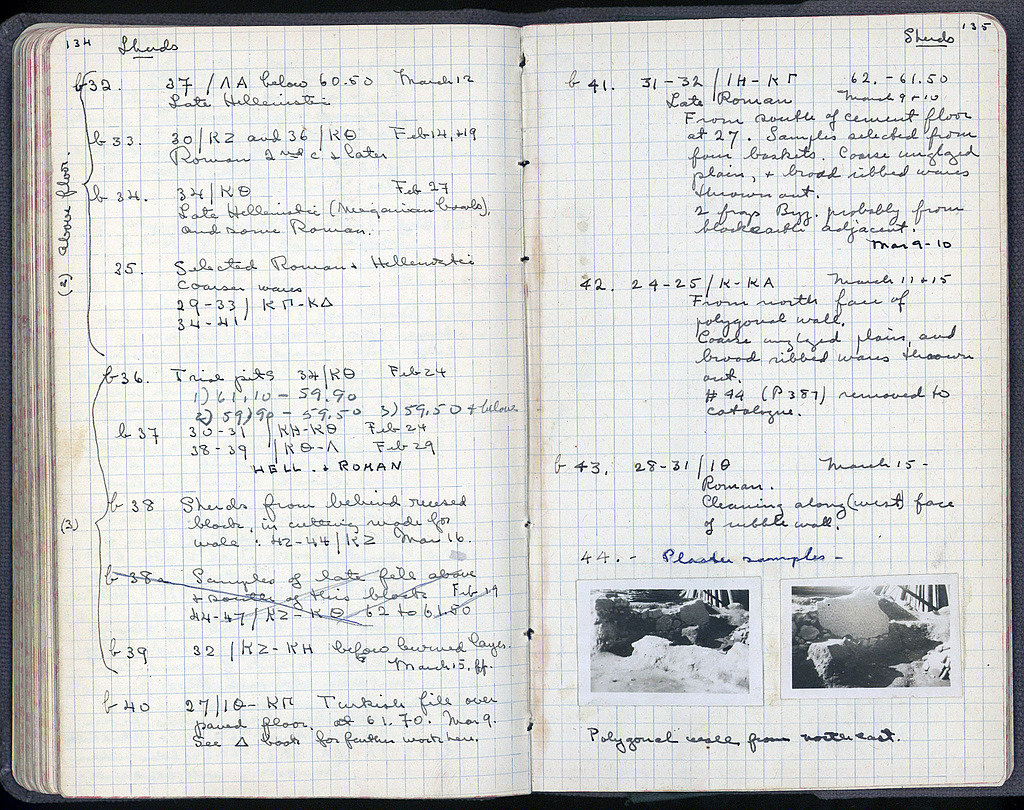 134 Sherds
b 32. 37 /ΛA below 60.50 March 12
Late Hellenistic
b 33. 30/KZ and 36/KΘ Feb 14, +19
Roman 2nd c + later
b 34. 34/KΘ Feb 27
Late Hellenistic (Megarian bowls),
and some Roman.
35. Selected Roman + Hellenistic
coarser wares
29-33/ KΓ-KΔ
34-41
(2) above floor.
b 36. Trial pits 34/KΘ Feb 24
1) 61,10 - 59.90
2) 59,90 - 59.50 3) 59,50 + below
b 37 30-31 /KH-KΘ Feb 24
38-39 /KΘ-Λ Feb 29
HELL. + ROMAN
b 38 Sherds from behind reused
block, in cutting made for
wall: 42-44/KZ Mar 16.
(3)
b 38a Samples of late fill above
+ south of this block Feb 19
44-47/KZ-KΘ 62 to 61.80
b 39 32 /KZ-KH below burned layer.
March 15, ff.
b 40 27/IΘ-KΓ Turkish fill over
paved floor. at 61.70. Mar 9.
See Δ book for further work here.
135
Sherds
b 41. 31-32/IH-KΓ 62.-61.50
Late Roman March 9+10
From south of cement floor
at 27. Samples selected from
four baskets. Coarse unglazed
plain, + broad ribbed wares
thrown out.
2 frags Byz. probably from
adjacent.
Mar 9-10
42. 24-25/K-KA March 11+15
From north face of
polygonal wall.
Coarse unglazed plain, and
broad ribbed wares thrown
out.
#44 (P387) removed to
catalogue.
b 43. 28-31/IΘ March 15-
Roman.
Cleaning along (west) face
of rubble wall.
44. - Plaster samples -
Polygonal wall from northeast.